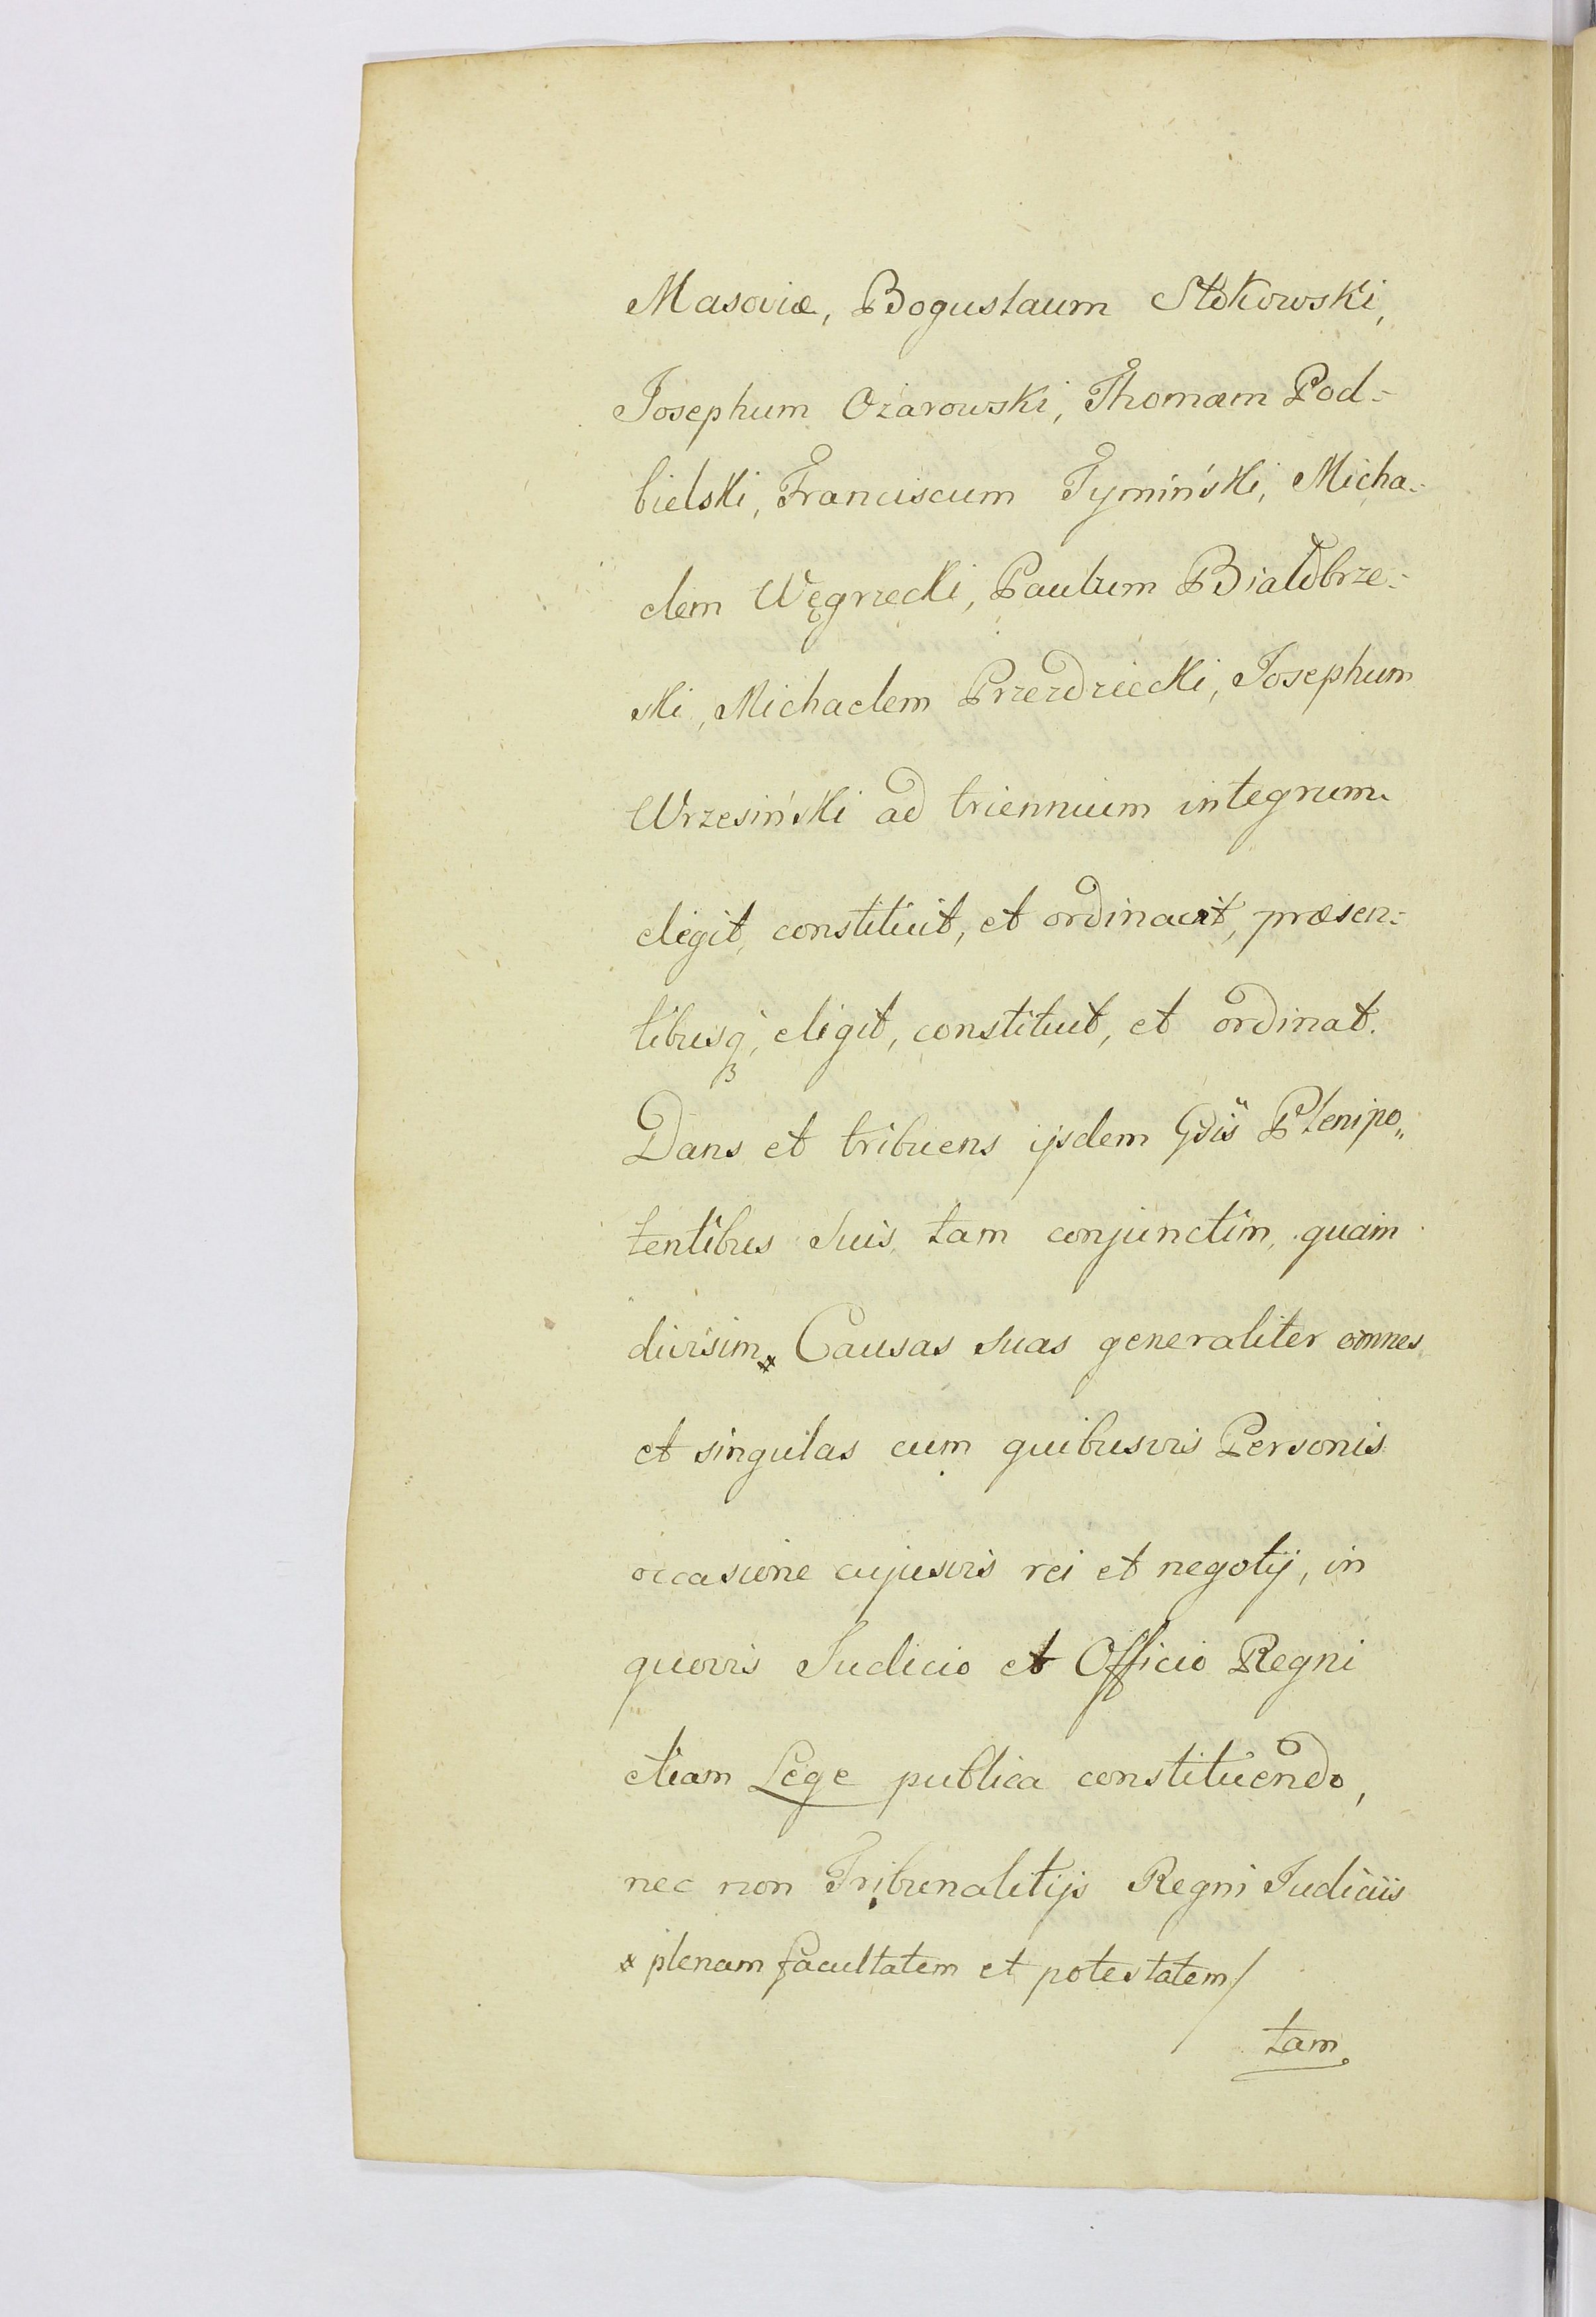 Masoviæ, Bogusłaum Stokowski,
Josephum Ożarowski, Thomam Pod-
bielski, Franciscum Tymiński, Micha-
elem Węgrzecki, Paulum Białobrze-
ski, Michaelem Przezdziecki, Josephum
Wrzesiński ad triennium integrum
elegit, constituit, et ordinavit, præsen-
tibusq, eligit, constituit, et ordinat.
Dans et tribuens ijsdem Gdis Plenipo„
tentibus suis tam conjunctim, quam
divisim x Causas suas generaliter omnes
et singulas cum quibusvis Personis
occasione cujusvis rei et negotij, in
quovis Judicio et Officio Regni
etiam Lege publica constituendo,
nec non Tribunalitijs Regni Judiciis
x plenam facultatem et potestatem /
tam